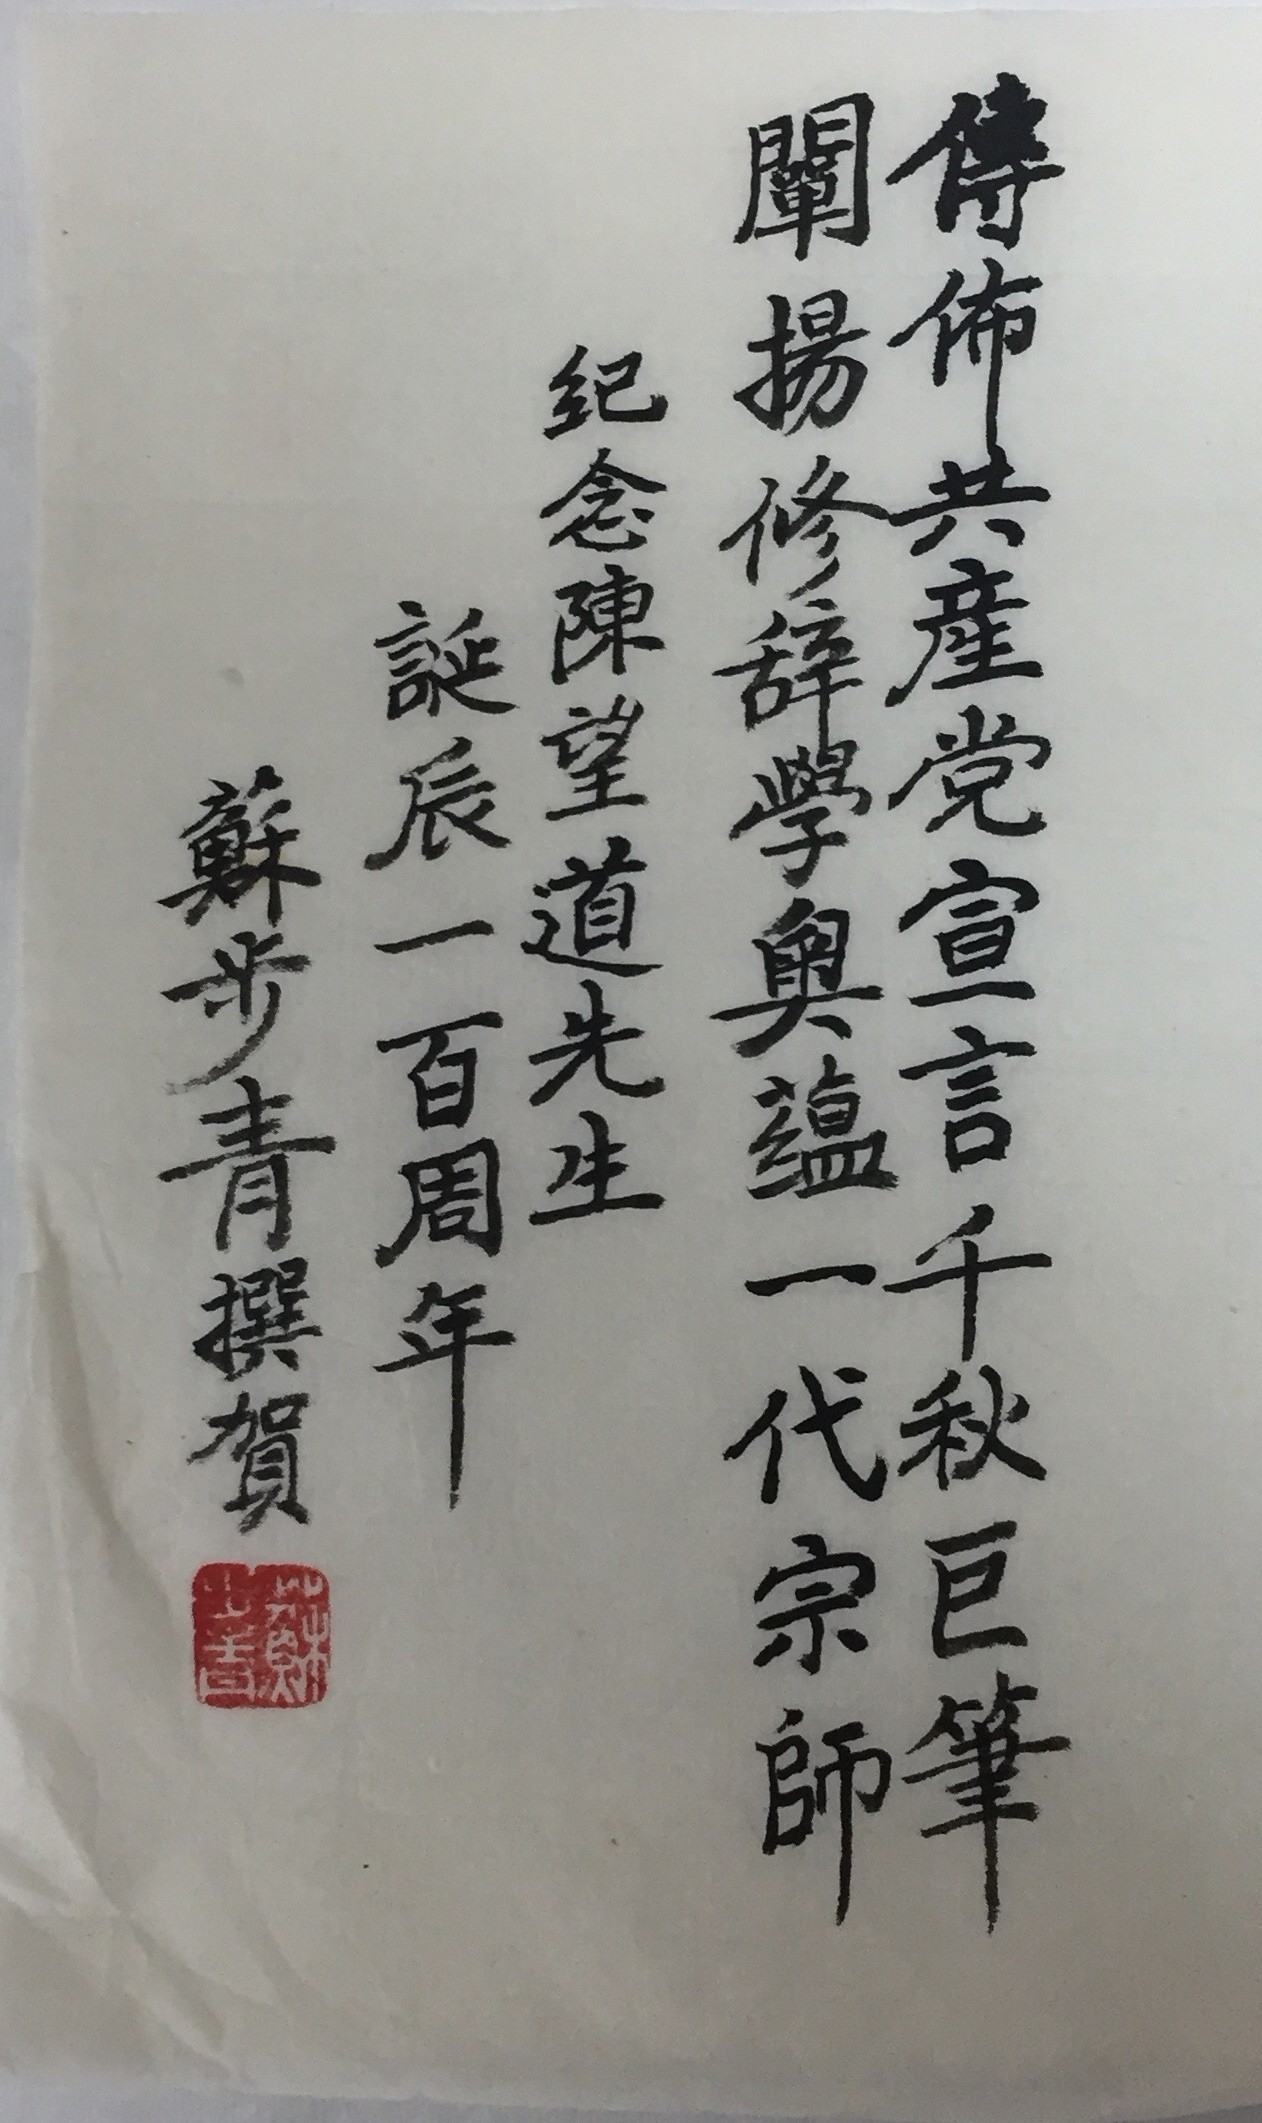 傳佈共産党宣言千秋巨筆
闡揚修辞學奥蕴一代宗師
纪念陳望道先生
誕辰一百周年
蘇步青撰賀
蘇步青